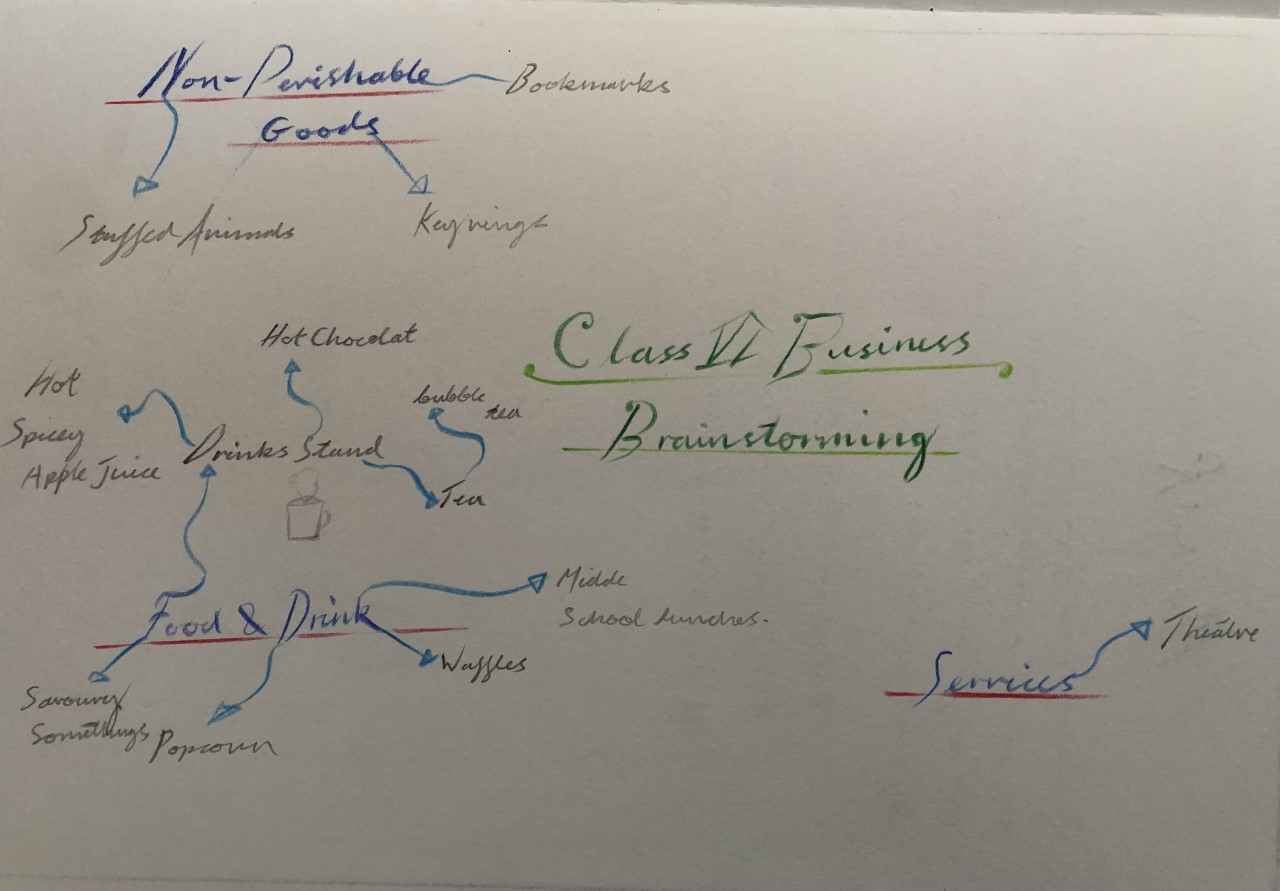 Non-Perishable
Bookmarks
Goods
Stuffed Animals
Keyrings
Class VI Business
Brainstorming
Hot Chocolat
Hot
Spicey
Apple Juice
bubble
tea
Drinks Stand
Tea
Food & Drink
Middle
School lunches.
Waffles
Savoury
Somethings
Popcorn
Services
Theatre